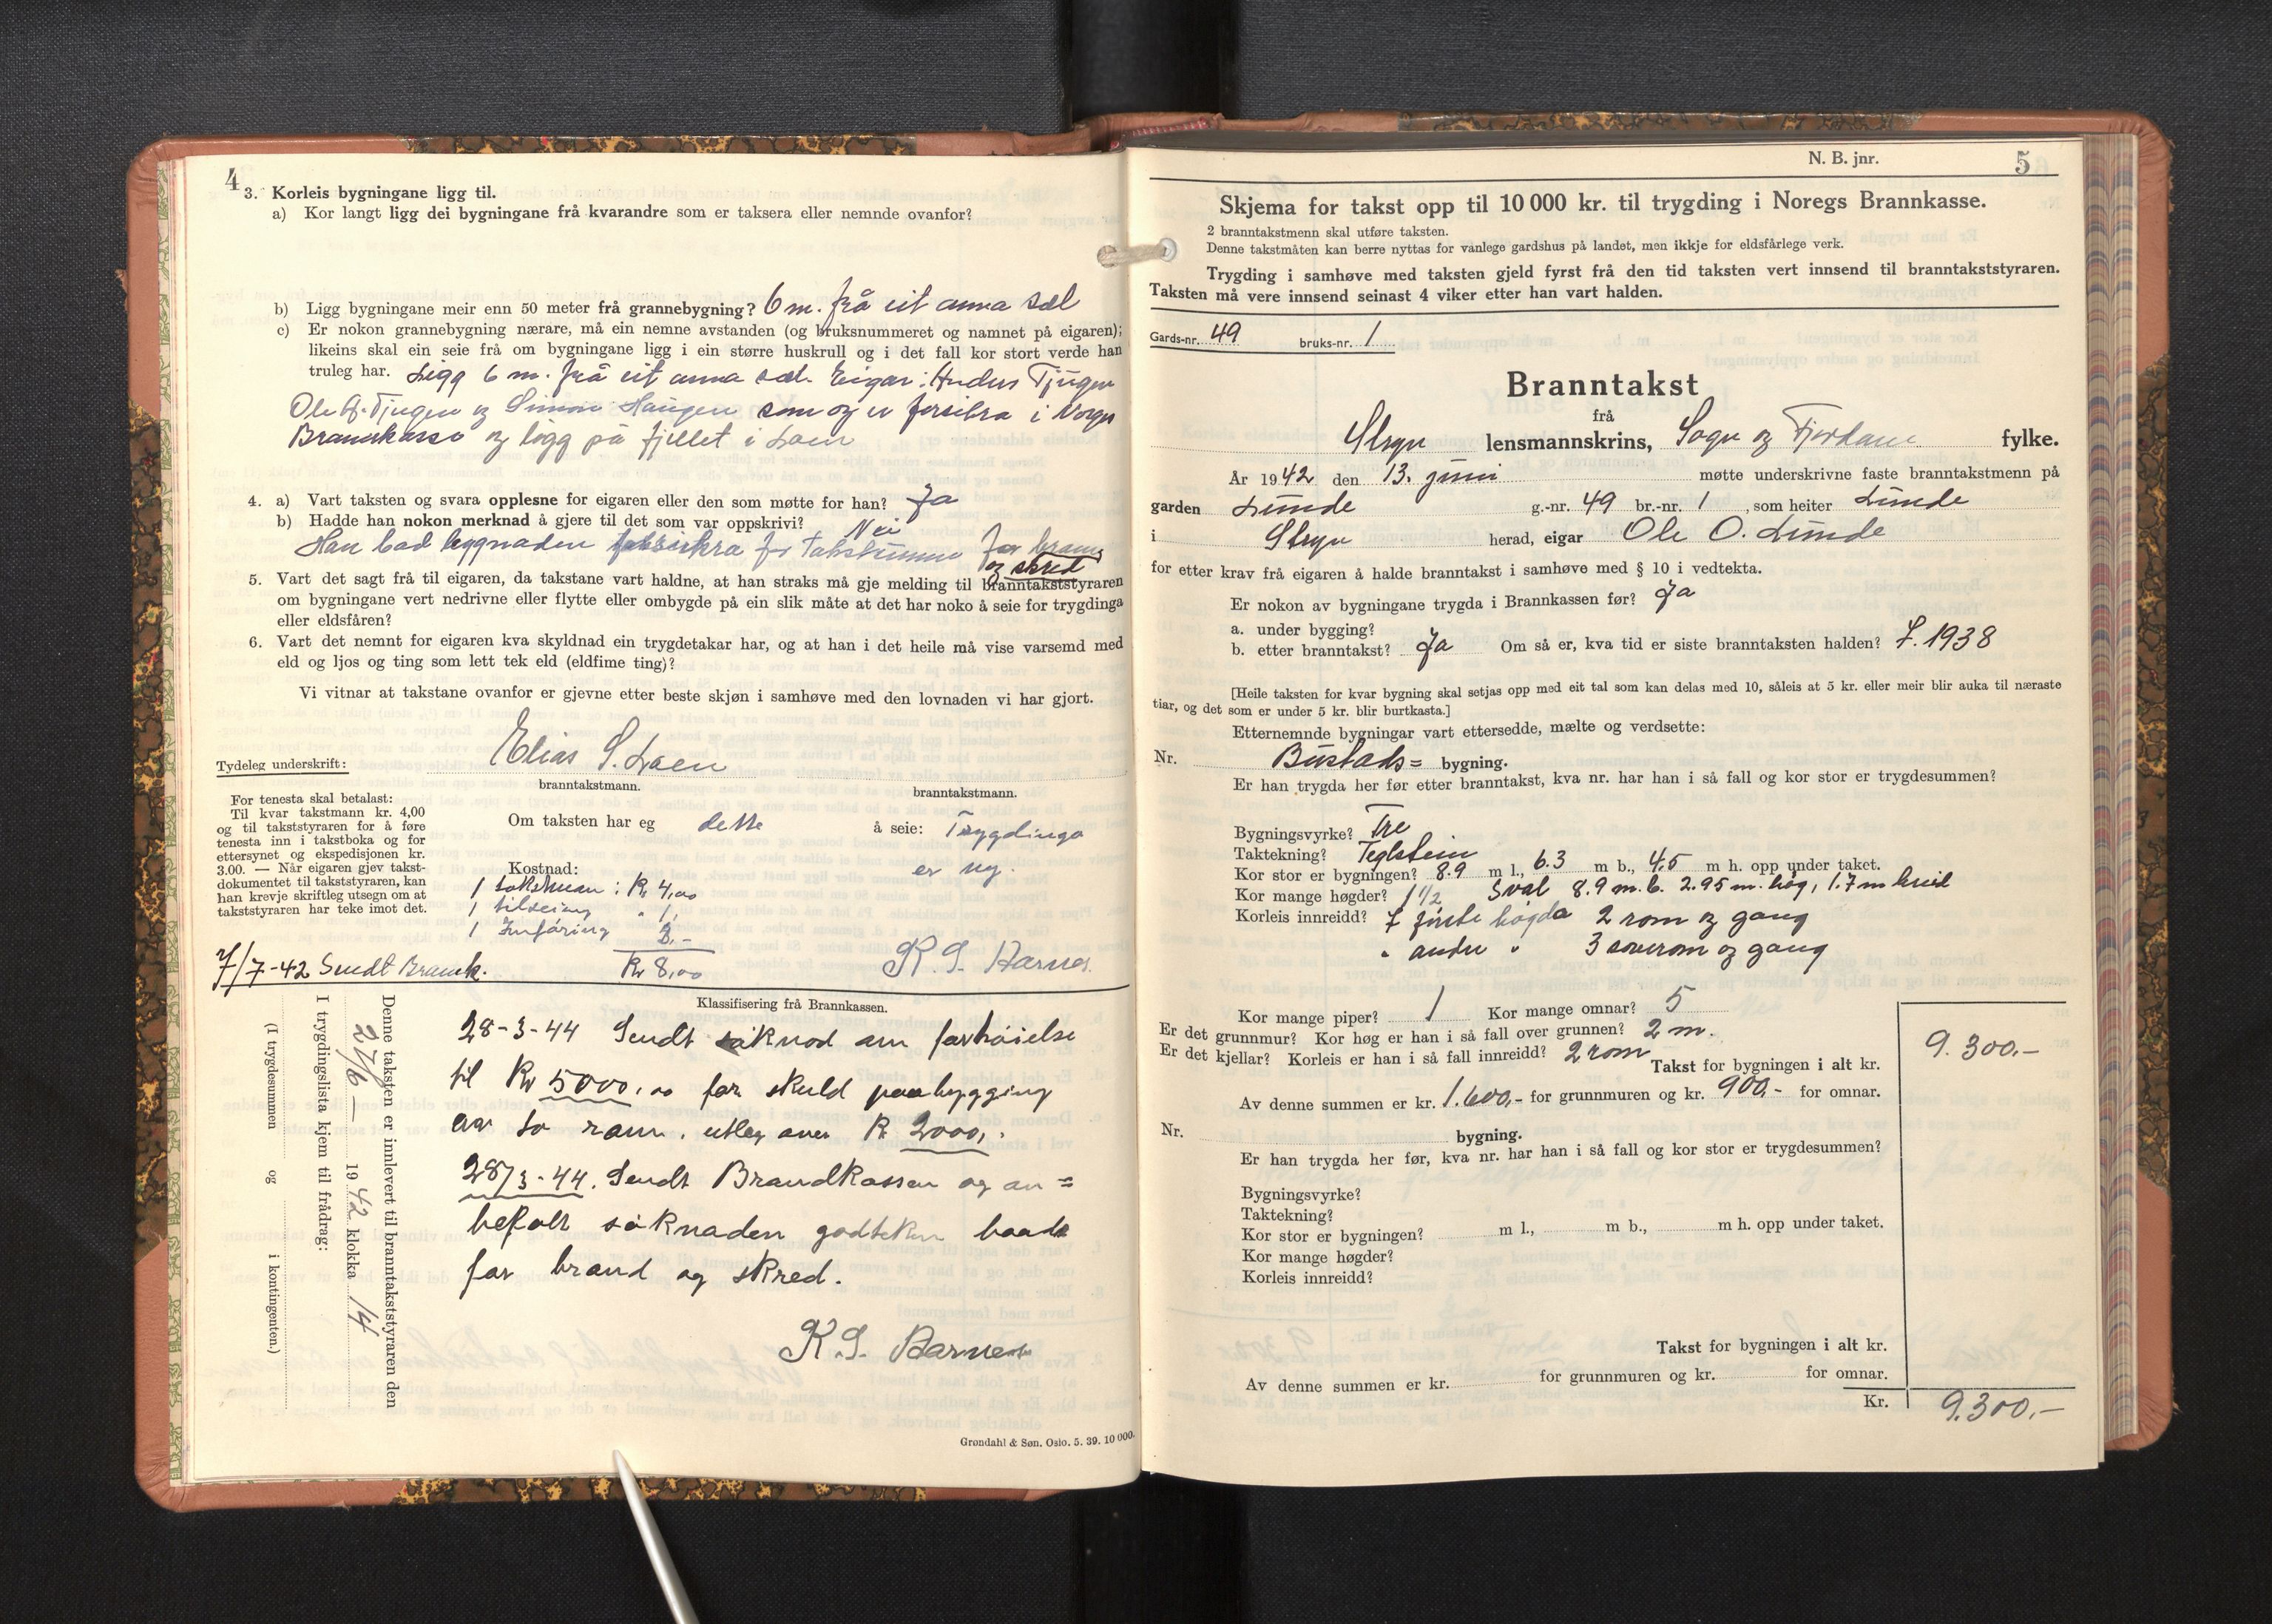 4
3. Korleis bygningane ligg til.
a) Kor langt ligg dei bygningane frå kvarandre som er taksera eller nemnde ovanfor?
b) Ligg bygningane meir enn 50 meter frå grannebygning? 6 m. frå eit anna sæl
c) Er nokon grannebygning nærare, må ein nemne avstanden (og bruksnummeret og namnet på eigaren);
likeins skal ein seie frå om bygningane ligg i ein større huskrull og i det fall kor stort verde han
truleg har. Ligg 6 m. frå eit anna sæl. Eigar: Anders Tjugen
Ole A. Tjugen og Simon Haugen som og er forsikra i Norges
Brannkasse og ligg på fjellet i Loen
4. a) Vart taksten og svara opplesne for eigaren eller den som møtte for han? Ja
b) Hadde han nokon merknad å gjere til det som var oppskrivi? Nei
Han bad bygnaden forsikra for takstsummen for brann
og skred
5. Vart det sagt frå til eigaren, da takstane vart haldne, at han straks må gje melding til branntakststyraren
om bygningane vert nedrivne eller flytte eller ombygde på ein slik måte at det har noko å seie for trygdinga
eller eldsfåren?
6. Vart det nemnt for eigaren kva skyldnad ein trygdetakar har, og at han i det heile må vise varsemd med
eld og ljos og ting som lett tek eld (eldfime ting)?
Vi vitnar at takstane ovanfor er gjevne etter beste skjøn i samhøve med den lovnaden vi har gjort.
Tydeleg underskrift: Elias S. Loen
branntakstmann. branntakstmann.
For tenesta skal betalast:
Til kvar takstmann kr. 4,00
og til takststyraren for å føre
tenesta inn i takstboka og for
ettersynet og ekspedisjonen kr.
3.00. — Når eigaren gjev takst-
dokumentet til takststyraren, kan
han krevje skriftleg utsegn om at
takststyraren har teke imot det.
Om taksten har eg dette å seie: Trygdinga
er ny.
Kostnad:
1 takstmann: Kr 4,00
1 tilseing " 1,
1 Innføring 3,-
Kr 8,00
K. S. Barnes
7/7-42 Sendt Brannk.
Klassifisering frå Brannkassen.
28-3-44 Sendt søknod om forhøielse
til Kr 5000,00 for skuld paabygging
av to rom, utlag over Kr 2000,-
28/3-44. Sendt Brandkassen og an=
befalt søknaden godteken baade
for brand og skred.
K. S. Barnes
Denne taksten er innlevert til branntakststyraren den
27/6 — 1942 klokka 14
I trygdingslista kjem til frådrag:
(I trygdesummen og i kontingenten.)
Grøndahl & Søn. Oslo. 5. 39. 10 000.
N. B. jnr. 5
Skjema for takst opp til 10 000 kr. til trygding i Noregs Brannkasse.
2 branntakstmenn skal utføre taksten.
Denne takstmåten kan berre nyttas for vanlege gardshus på landet, men ikkje for eldsfårlege verk.
Trygding i samhøve med taksten gjeld fyrst frå den tid taksten vert innsend til branntakststyraren.
Taksten må vere innsend seinast 4 viker etter han vart halden.
Gards-nr. 49 bruks-nr. 1
Branntakst
frå
Stryn lensmannskrins, Sogn og Fjordane fylke.
År 1942 den 13. juni møtte underskrivne faste branntakstmenn på
garden Lunde g.-nr. 49 br.-nr. 1, som heiter Lunde
i Stryn herad, eigar Ole O. Lunde
for etter krav frå eigaren å halde branntakst i samhøve med § 10 i vedtekta.
Er nokon av bygningane trygda i Brannkassen før? Ja
a. under bygging?
b. etter branntakst? Ja Om så er, kva tid er siste branntaksten halden? F. 1938
[Heile taksten for kvar bygning skal setjas opp med eit tal som kan delas med 10, såleis at 5 kr. eller meir blir auka til næraste
tiar, og det som er under 5 kr. blir burtkasta.]
Etternemnde bygningar vart ettersedde, mælte og verdsette:
Nr. Bustads= bygning.
Er han trygda her før etter branntakst, kva nr. har han i så fall og kor stor er trygdesummen?
Bygningsvyrke? Tre
Taktekning? Teglstein
Kor stor er bygningen? 8.9 m l., 6.3 m b., 4.5 m h. opp under taket.
Kor mange høgder? 1 1/2 Sval 8.9 m. l. 2.95 m. høg, 1.7 m breid
Korleis innreidd? I fyrste høgda 2 rom og gang
" andre " 3 soverom og gang
Kor mange piper? 1 Kor mange omnar? 5
Er det grunnmur? Kor høg er han i så fall over grunnen? 2 m.
Er det kjellar? Korleis er han i så fall innreidd? 2 rom
Takst for bygningen i alt kr. 9.300.-
Av denne summen er kr. 1.600,- for grunnmuren og kr. 900,- for omnar.
Nr. bygning.
Er han trygda her før, kva nr. har han i så fall og kor stor er trygdesummen?
Bygningsvyrke?
Taktekning?
Kor stor er bygningen? m l., m b., m h. opp under taket.
Kor mange høgder?
Korleis innreidd?
Takst for bygningen i alt kr.
Av denne summen er kr. for grunnmuren og kr. for omnar.
Kr. 9.300.-